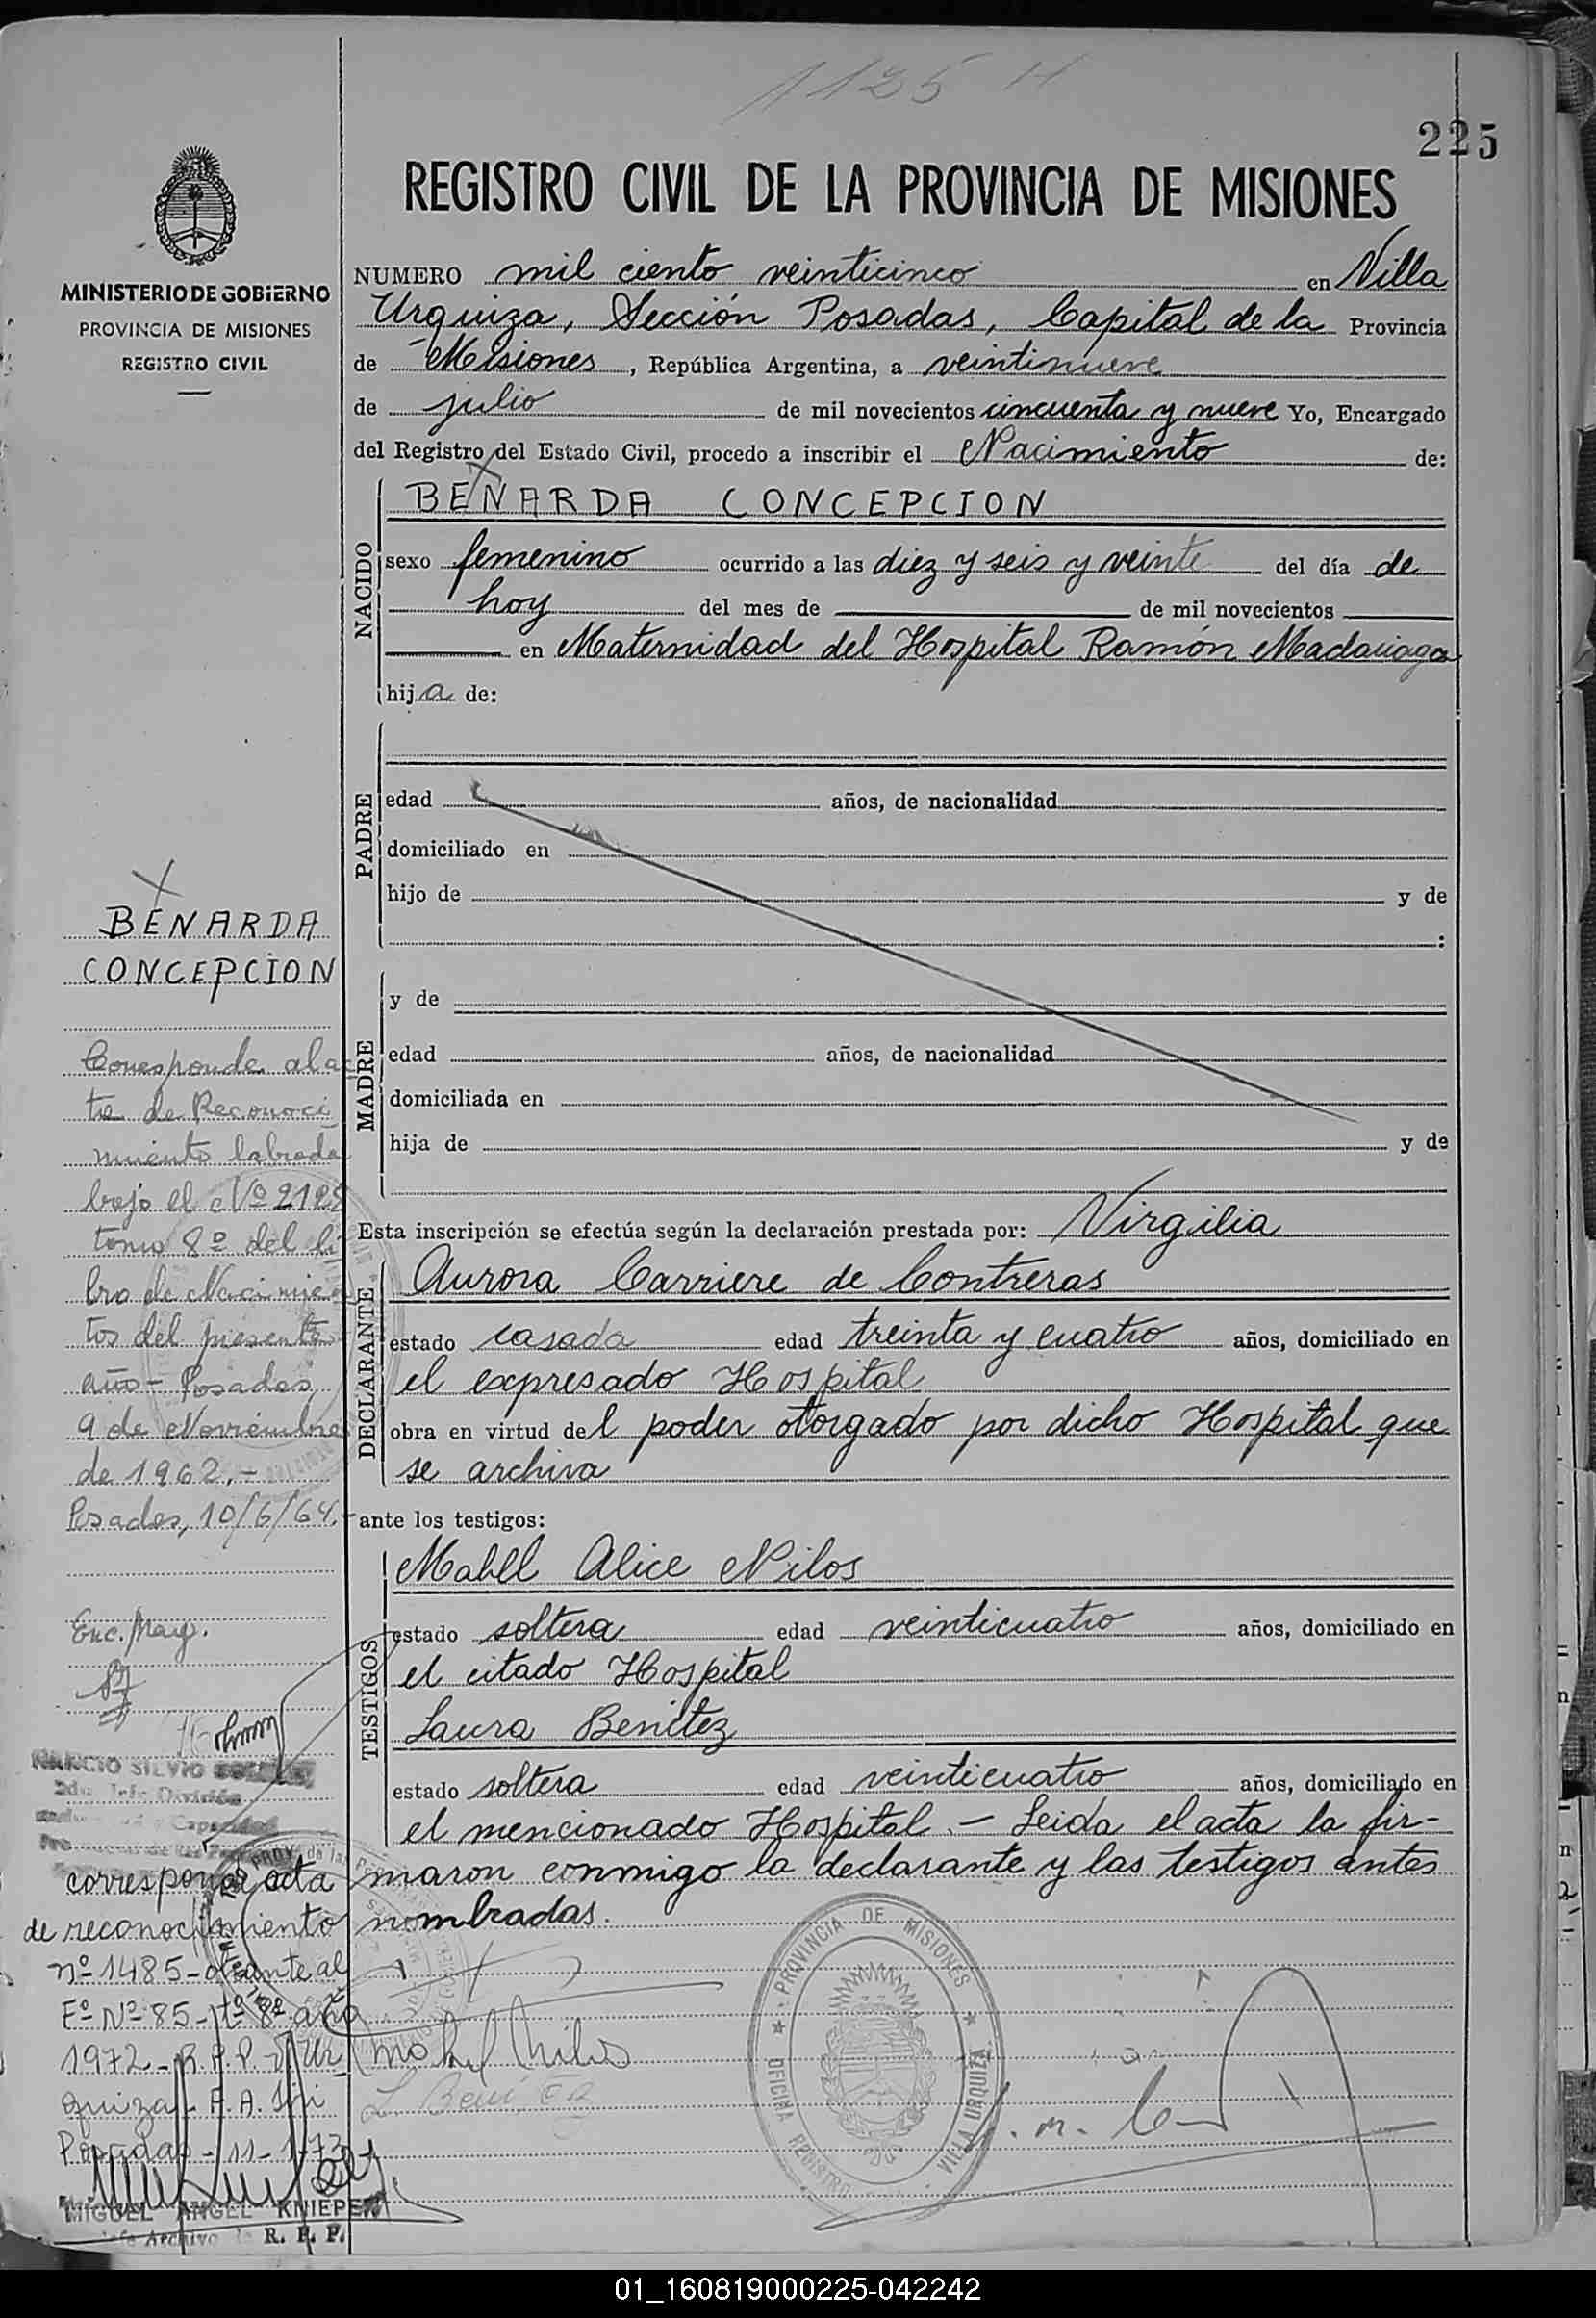 1125 H
225
REGISTRO CIVIL DE LA PROVINCIA DE MISIONES
MINISTERIO DE GOBIERNO
PROVINCIA DE MISIONES
REGISTRO CIVIL
NUMERO mil ciento veinticinco en Villa
Urquiza, Sección Posadas, Capital de la Provincia
de Misiones, República Argentina, a veintinueve
de julio de mil novecientos cincuenta y nueve Yo, Encargado
del Registro del Estado Civil, procedo a inscribir el Nacimiento de:
NACIDO
X
BENARDA CONCEPCION
sexo femenino ocurrido a las diez y seis y veinte del día de
hoy del mes de de mil novecientos
en Maternidad del Hospital Ramón Madariaga
hija de:
PADRE
edad años, de nacionalidad
domiciliado en
hijo de y de
:
MADRE
y de
edad años, de nacionalidad
domiciliada en
hija de y de
Esta inscripción se efectúa según la declaración prestada por: Virgilia
DECLARANTE
Aurora Carriere de Contreras
estado casada edad treinta y cuatro años, domiciliado en
el expresado Hospital
obra en virtud del poder otorgado por dicho Hospital que
se archiva
ante los testigos:
TESTIGOS
Mabel Alice Nilos
estado soltera edad veinticuatro años, domiciliado en
el citado Hospital
Laura Benitez
estado soltera edad veinticuatro años, domiciliado en
el mencionado Hospital.- Leida el acta la fir-
maron conmigo la declarante y las testigos antes
nombradas.
PROVINCIA DE MISIONES
OFICINA REGISTRO VILLA URQUIZA
X
BENARDA
CONCEPCION
Corresponde al ac
ta de Reconoci
miento labrada
bajo el Nº 2128
tomo 8º del li
bro de Nacimien
tos del presente
año - Posadas,
9 de Noviembre
de 1962.-
Posadas, 10/6/64.-
Enc. Marg.
NARCIO SILVIO
corresponde acta
de reconocimiento
nº 1485- obrante al
Fº Nº 85- tº 8º año
1972- R.P.P. V. Ur
quiza
Posadas -11-1-73
MIGUEL ANGEL KNIEPER
Archivo R. P. P.
01_160819000225-042242